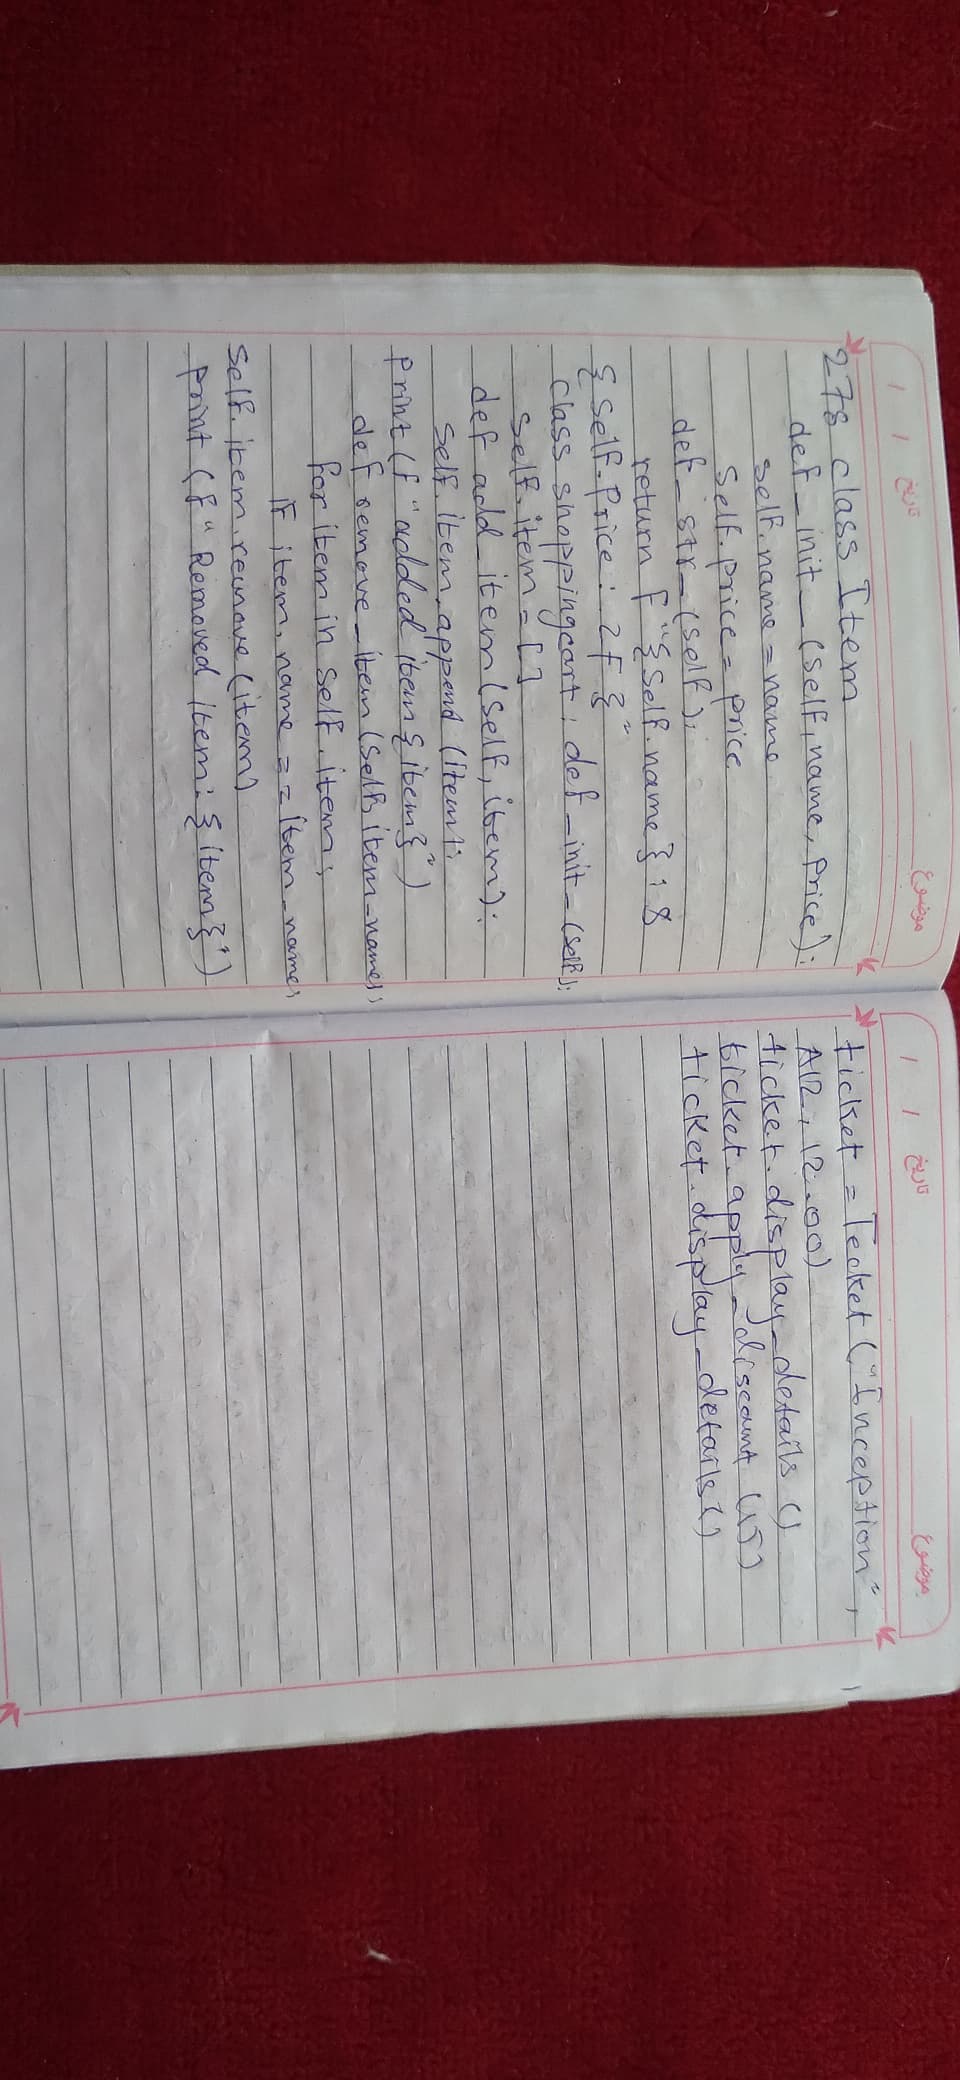 تاریخ / / موضوع
278 class Item
def_init__(self, name, price):
self.name = name
self.price = price
def_str_(self):
return f"{self.name} : 8
{self.price : 2f}"
class shoppingcart: def_init_(self):
self.item = []
def add_item(self, item):
self.item.append(item):
print(f"added item{item}")
def remove_item(self, item_name):
for item in self.item:
if item.name == item_name:
self.item.remove(item)
print(f"Removed item: {item}")
تاریخ / / موضوع
ticket = Tecket("Inception",
A12, 12.00)
ticket.display_details()
ticket.apply_discount(15)
ticket.display_details()